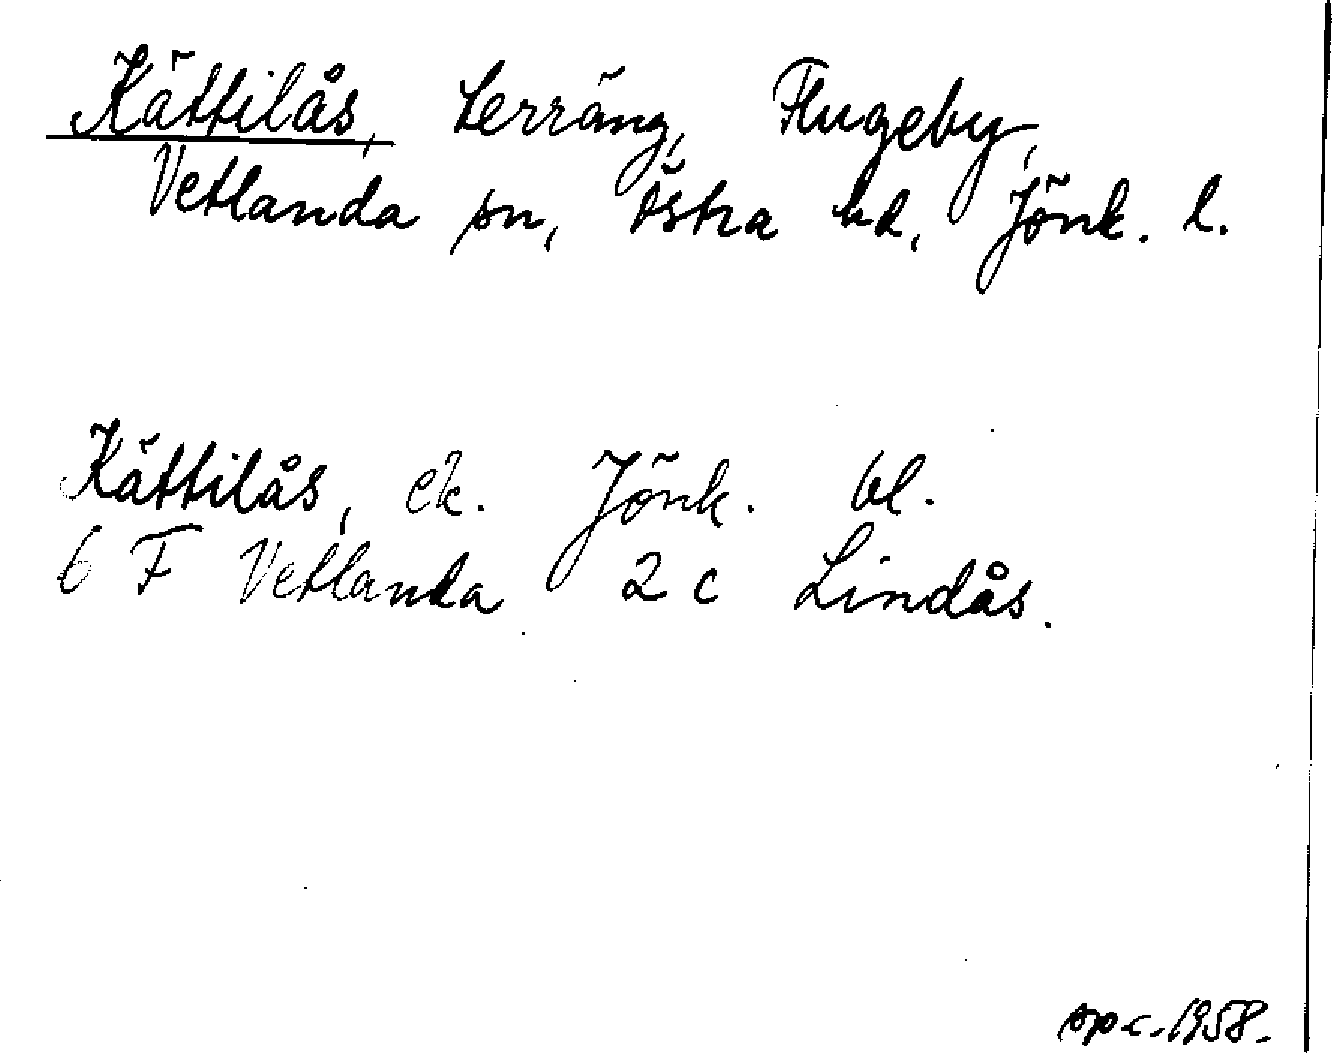 Kättilås, terräng, Flugeby,
Vetlanda sn, Östra hd, Jönk. l.
Kättilås, ek. Jönk. bl.
6 F Vetlanda 2 c Lindås.
1958.